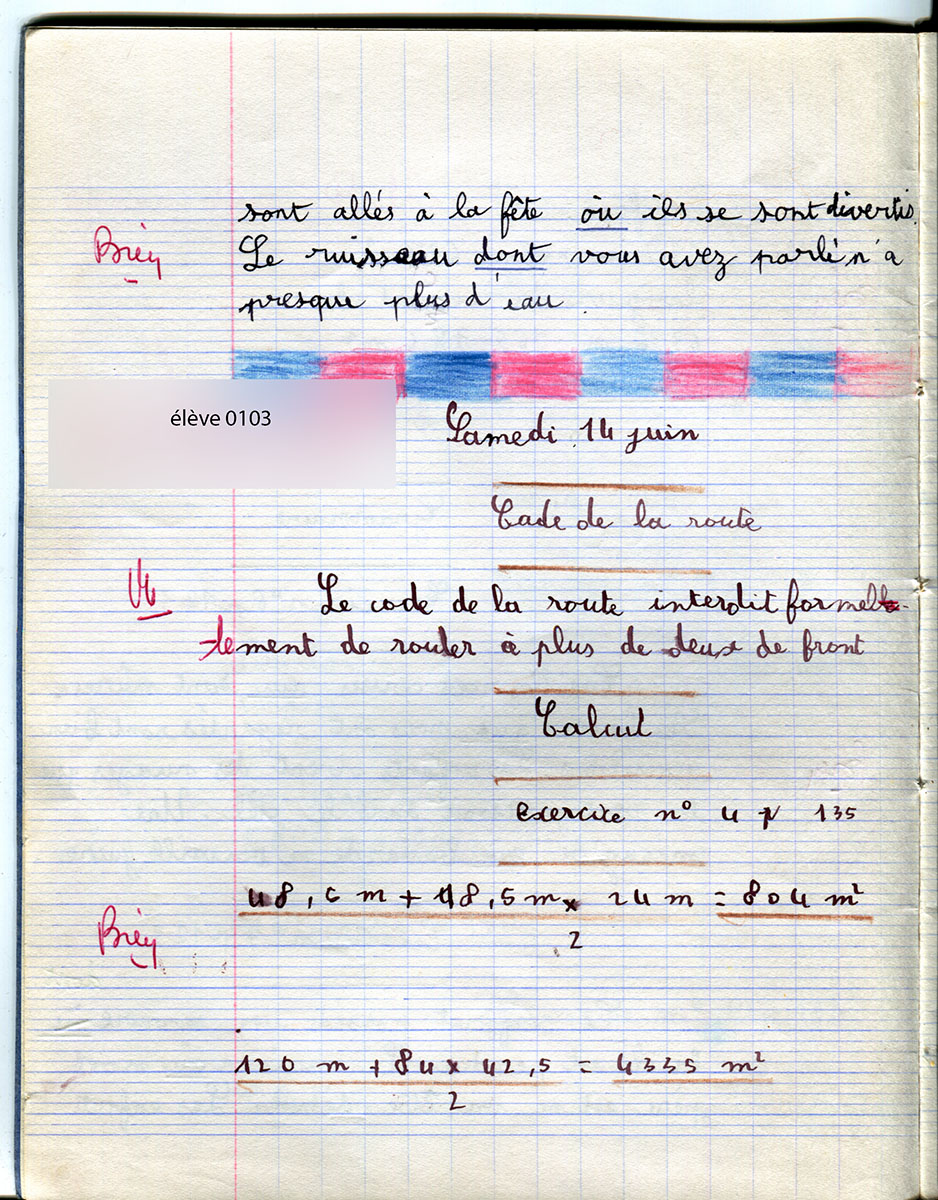 sont allés à la fête où ils se sont divertis.
Bien
Le ruisseau dont vous avez parlé n'a
presque plus d'eau.
élève 0103
Samedi 14 juin
Code de la route
Vu
Le code de la route interdit formel-
lement de rouler à plus de deux de front
Calcul
exercice n° 4 p 135
48,5 m + 18,5 m x 24 m = 804 m²
2
Bien
120 m + 84 x 42,5 = 4335 m²
2